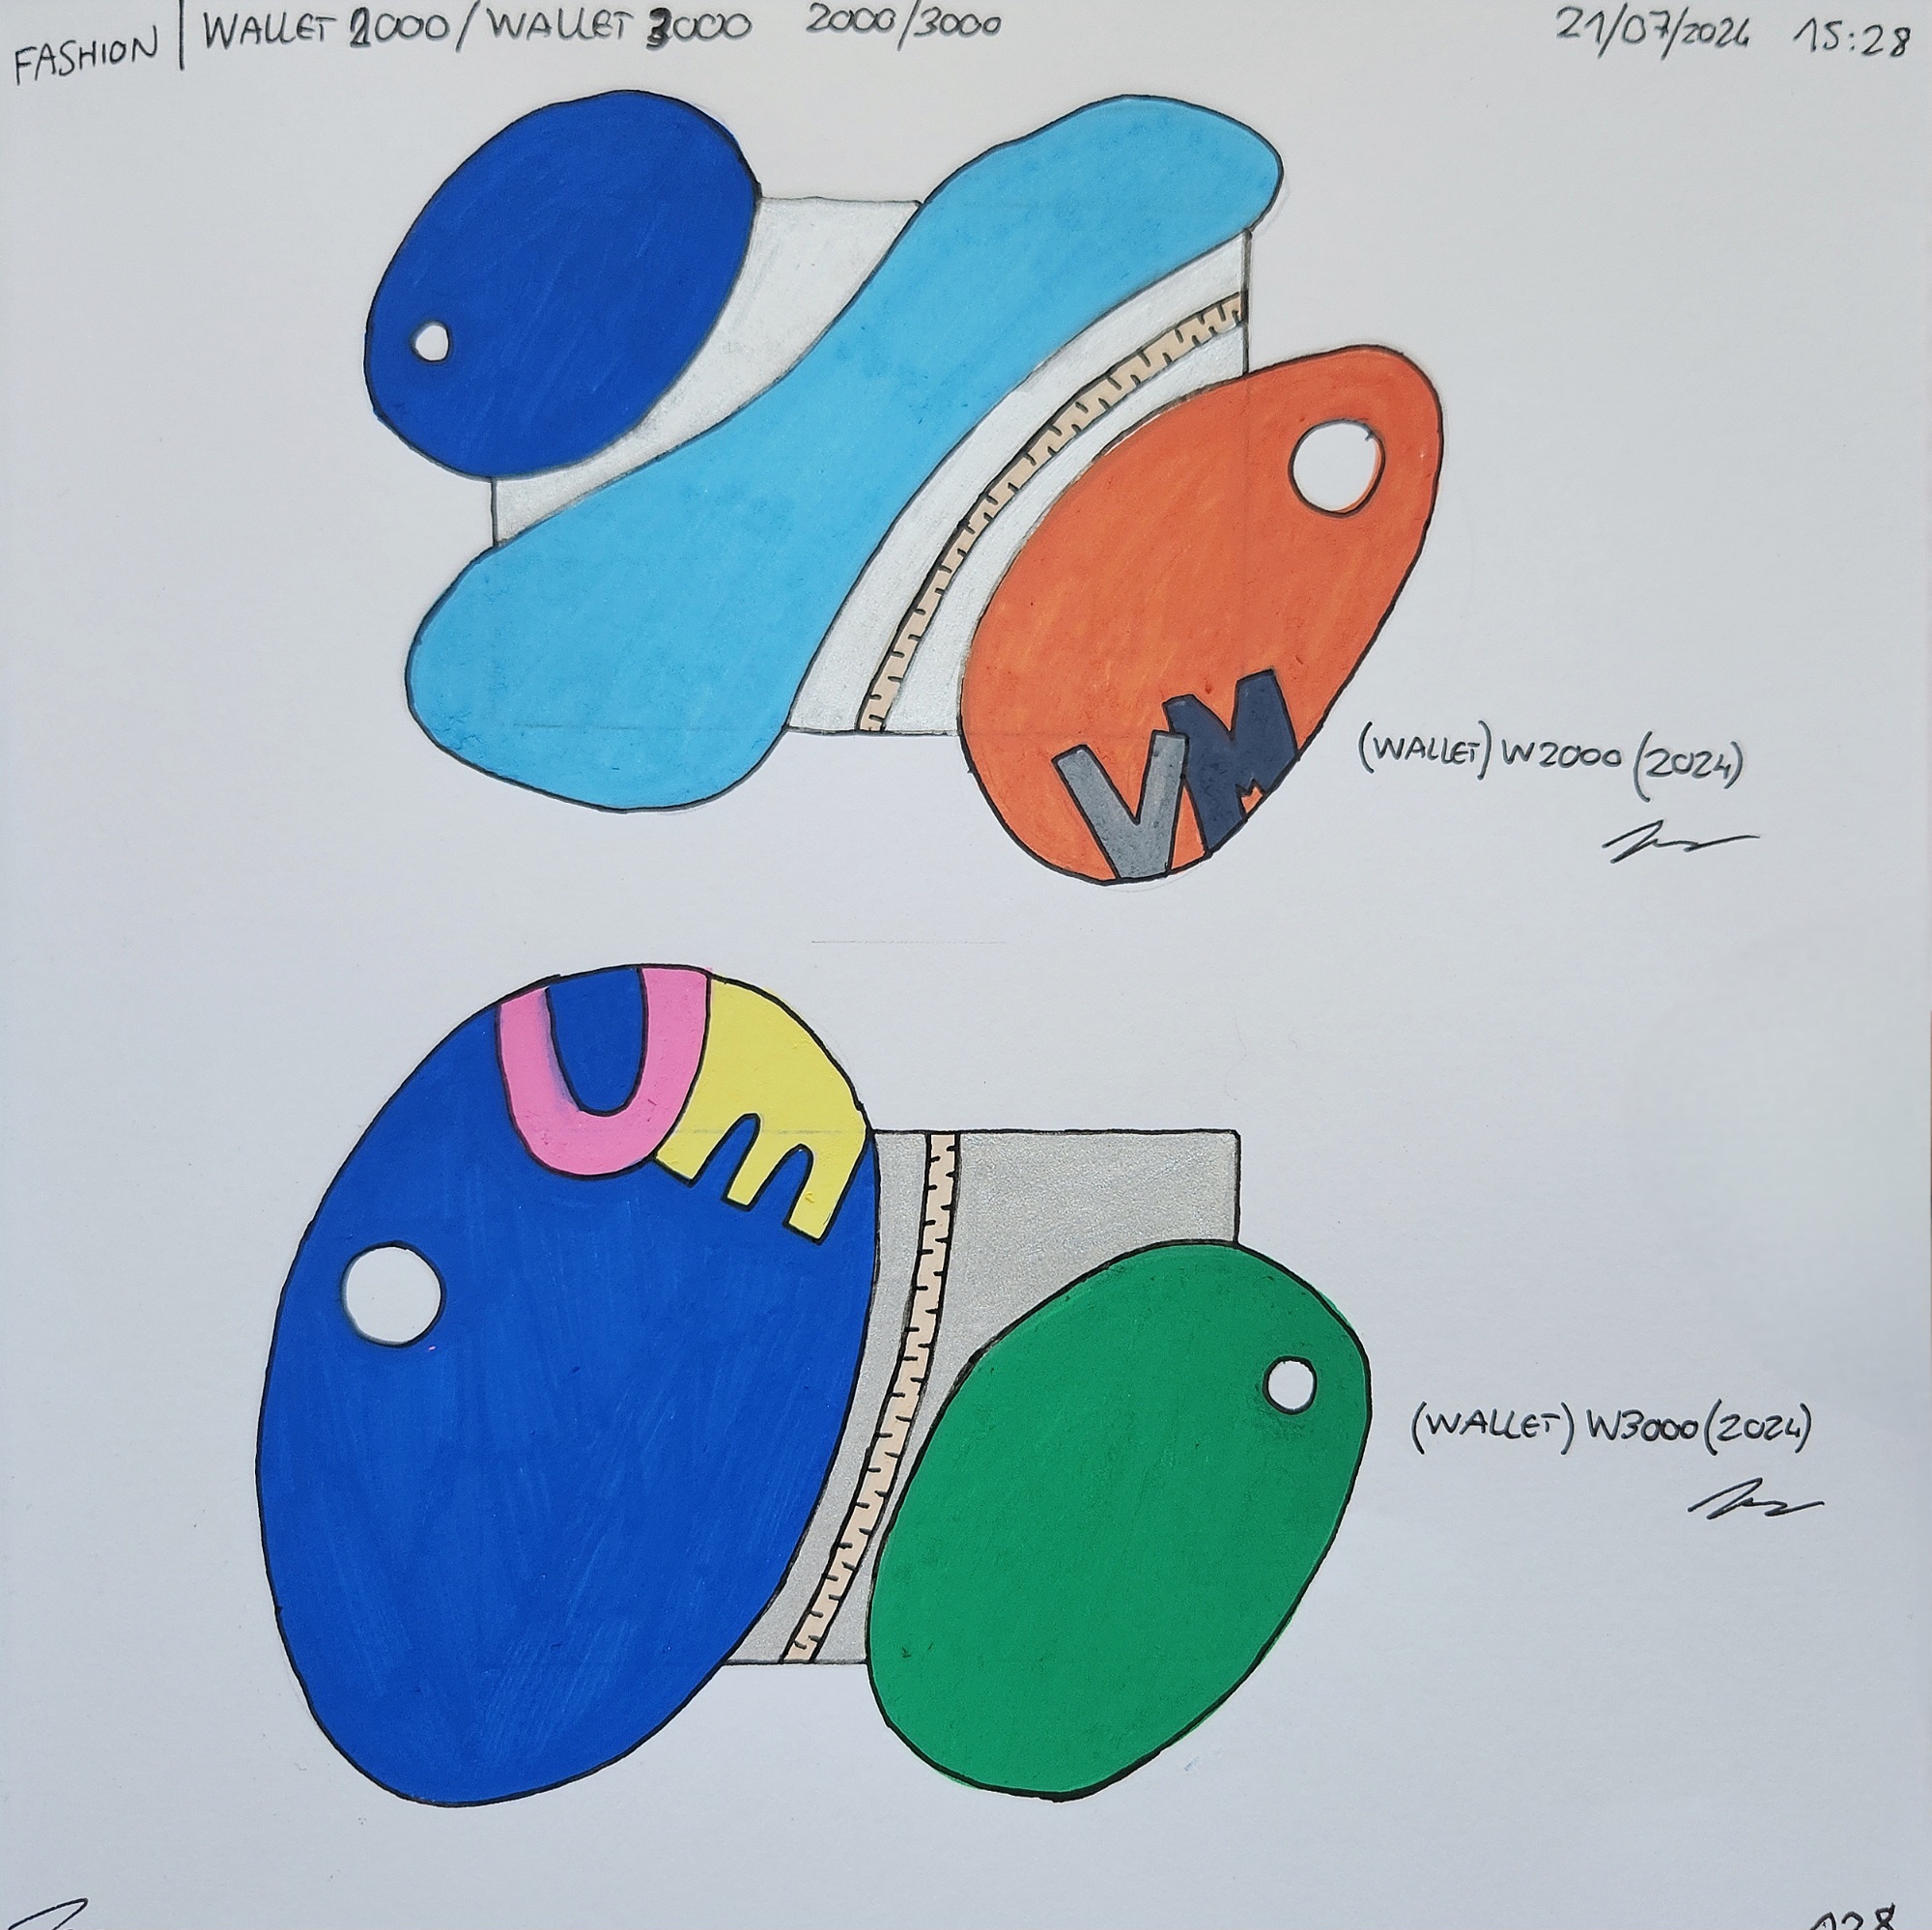 FASHION | WALLET 2000 / WALLET 3000 2000/3000
21/07/2024 15:28
VM
(WALLET) W2000 (2024)
UM
(WALLET) W3000 (2024)